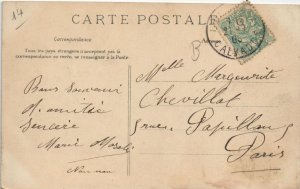 14
CARTE POSTALE
Correspondance
Tous les pays étrangers n'acceptent pas la
correspondance au recto, se renseigner à la Poste.
CALVADOS
Bons Souvenirs
d'amitié
sincère
Marie
Melle Marguerite
Chevillat
rue Papillon
Paris